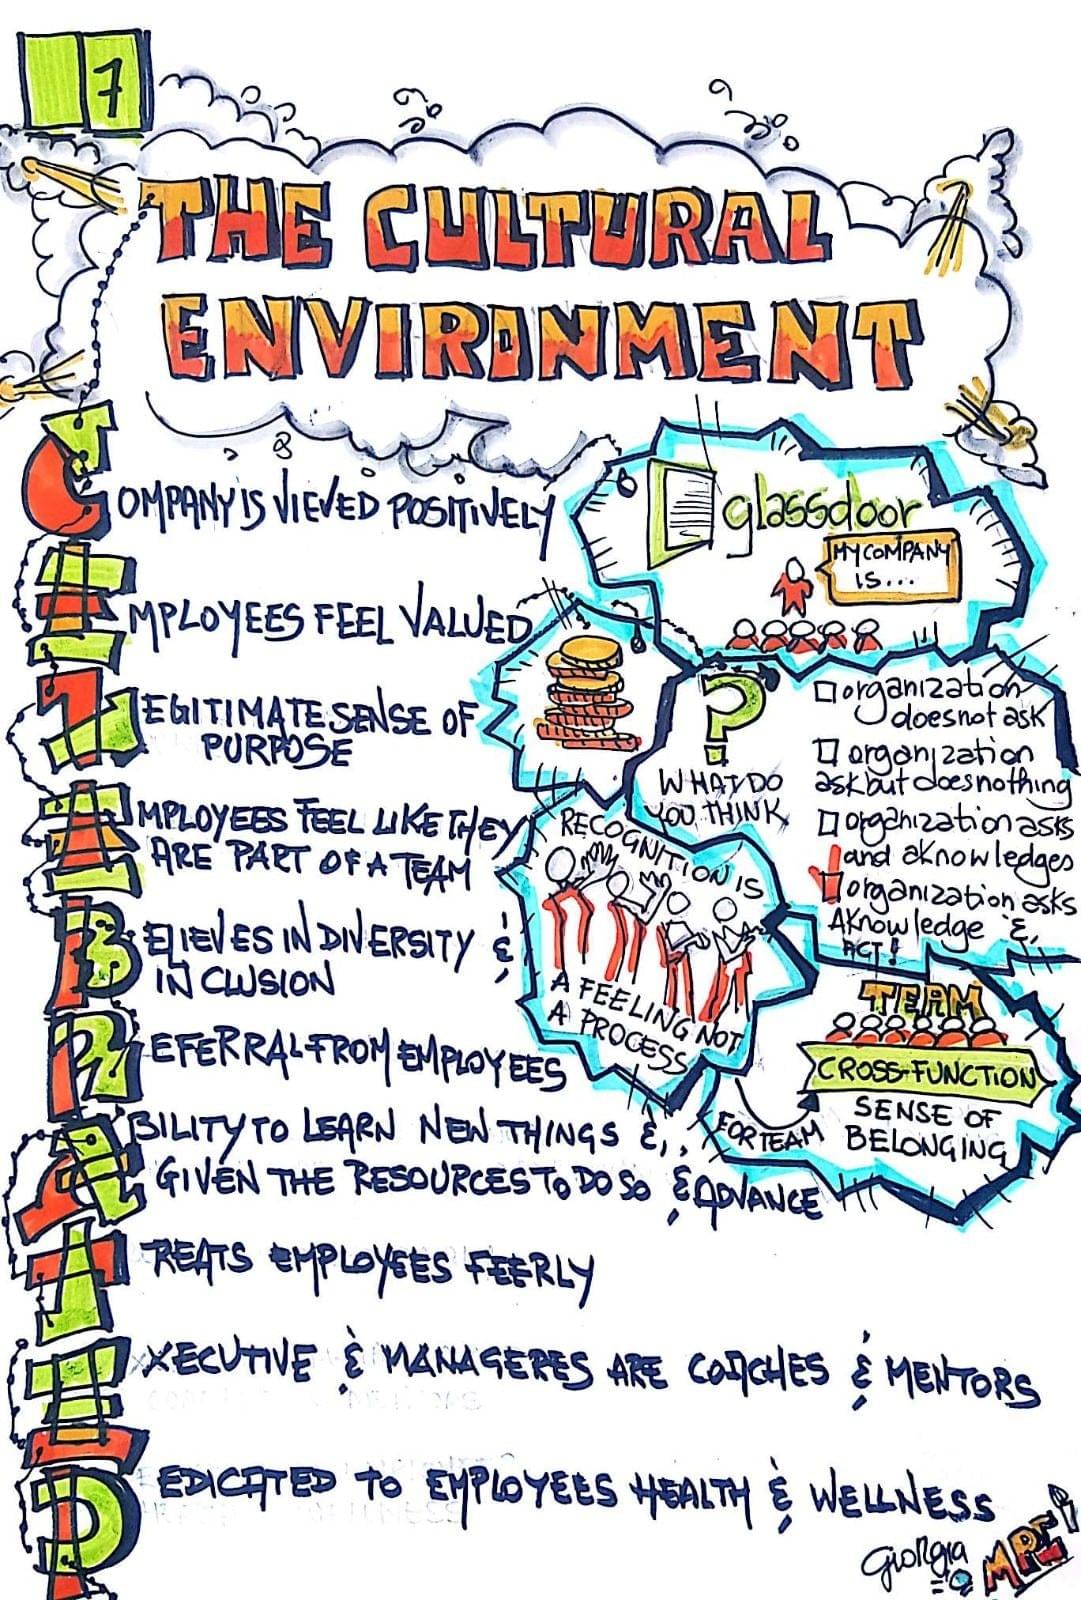 7
THE CULTURAL
ENVIRONMENT
COMPANY IS VIEVED POSITIVELY
EMPLOYEES FEEL VALUED
LEGITIMATE SENSE OF
PURPOSE
EMPLOYEES FEEL LIKE THEY
ARE PART OF A TEAM
BELIEVES IN DIVERSITY &
INCLUSION
REFERRAL FROM EMPLOYEES
ABILITY TO LEARN NEW THINGS &
GIVEN THE RESOURCES TO DO SO & ADVANCE
TREATS EMPLOYEES FEERLY
EXECUTIVE & MANAGERES ARE COACHES & MENTORS
DEDICATED TO EMPLOYEES HEALTH & WELLNESS
glassdoor
MY COMPANY
IS...
?
WHAT DO
YOU THINK
organization
does not ask
organization
ask but does nothing
organization asks
and aknowledges
organization asks
AKnowledge &
ACT!
RECOGNITION IS
A FEELING NOT
A PROCESS
TEAM
CROSS-FUNCTION
SENSE OF
BELONGING
FOR TEAM
Giorgia